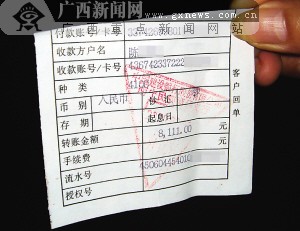 广西新闻网
www.gxnews.com.cn
广西重点新闻网站
付款账号/卡号
收款方户名 陈
收款账号/卡号 436742337222
种类 4100
币别 人民币
存期 起息日
转账金额 8,111.00 元
手续费 元
流水号 450604454010
授权号
客户回单